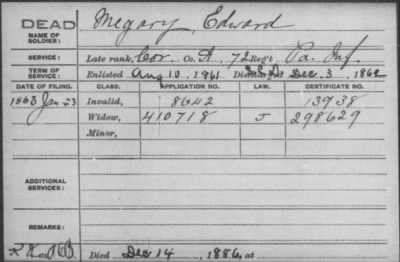 DEAD Megary, Edward
NAME OF SOLDIER:
SERVICE: Late rank, Cor. Co. A, 72 Reg't Pa. Inf.
TERM OF SERVICE: Enlisted Aug 10, 1861 Discharged Dec. 3, 1862
DATE OF FILING. CLASS. APPLICATION NO. LAW. CERTIFICATE NO.
1863 Jan 23 Invalid, 8642 13938
Widow, 410718 J 298629
Minor,
ADDITIONAL SERVICES:
REMARKS:
Died Dec 14, 1886, at